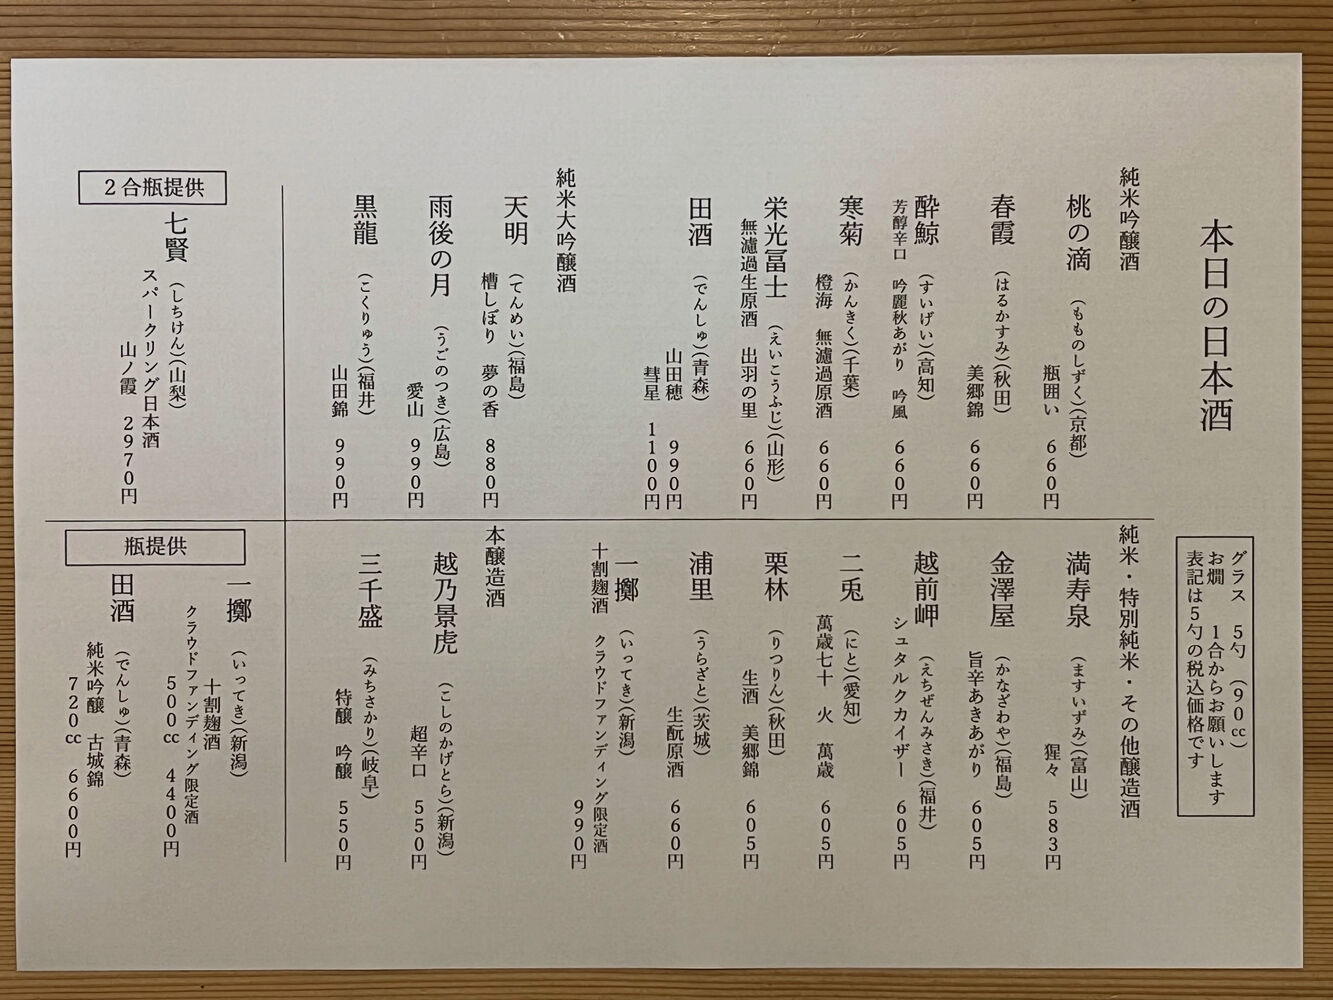 本日の日本酒
グラス　5勺　(90㏄)
お燗　1合からお願いします
表記は5勺の税込価格です
純米吟醸酒
桃の滴　(もものしずく)(京都)
瓶囲い　660円
春霞　(はるかすみ)(秋田)
美郷錦　660円
酔鯨　(すいげい)(高知)
芳醇辛口　吟麗秋あがり　吟風　660円
寒菊　(かんきく)(千葉)
橙海　無濾過原酒　660円
栄光冨士　(えいこうふじ)(山形)
無濾過生原酒　出羽の里　660円
田酒　(でんしゅ)(青森)
山田穂　990円
彗星　1100円
純米大吟醸酒
天明　(てんめい)(福島)
槽しぼり　夢の香　880円
雨後の月　(うごのつき)(広島)
愛山　990円
黒龍　(こくりゅう)(福井)
山田錦　990円
純米・特別純米・その他醸造酒
満寿泉　(ますいずみ)(富山)
猩々　583円
金澤屋　(かなざわや)(福島)
旨辛あきあがり　605円
越前岬　(えちぜんみさき)(福井)
シュタルクカイザー　605円
二兎　(にと)(愛知)
萬歳七十　火　萬歳　605円
栗林　(りつりん)(秋田)
生酒　美郷錦　605円
浦里　(うらざと)(茨城)
生酛原酒　660円
一擲　(いってき)(新潟)
十割麹酒　クラウドファンディング限定酒
990円
本醸造酒
越乃景虎　(こしのかげとら)(新潟)
超辛口　550円
三千盛　(みちさかり)(岐阜)
特醸　吟醸　550円
2合瓶提供
七賢　(しちけん)(山梨)
スパークリング日本酒
山ノ霞　2970円
瓶提供
一擲　(いってき)(新潟)
十割麹酒
クラウドファンディング限定酒
500㏄　4400円
田酒　(でんしゅ)(青森)
純米吟醸　古城錦
720㏄　6600円